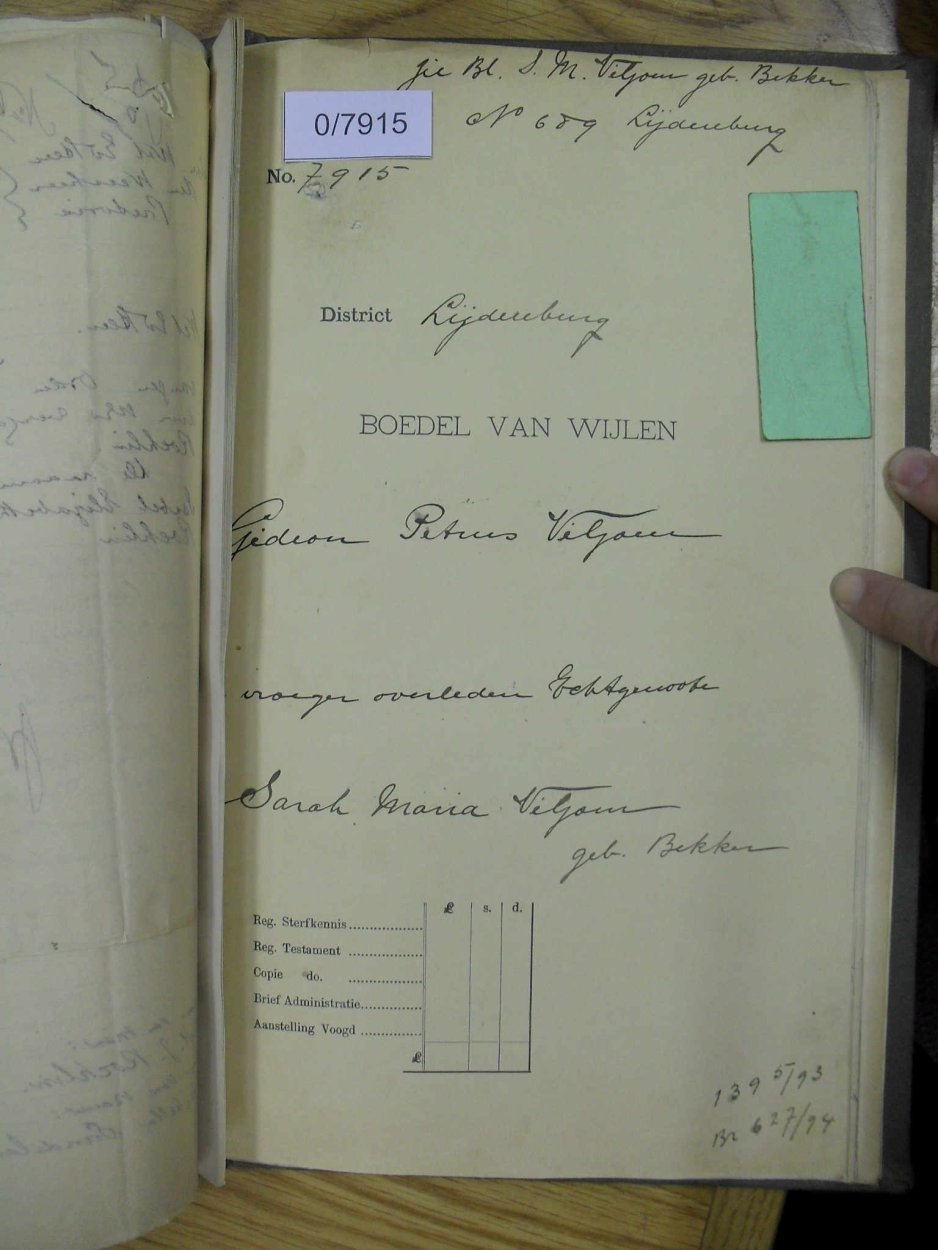 zie Bl. S. M. Viljoen geb. Bekker
No 689 Lijdenburg
0/7915
No. 7915
District Lijdenburg
BOEDEL VAN WIJLEN
Gideon Petrus Viljoen
vroeger overleden Echtgenoote
Sarah Maria Viljoen
geb. Bekker
£ s. d.
Reg. Sterfkennis
Reg. Testament
Copie do.
Brief Administratie
Aanstelling Voogd
£
1395/93
Br 627/94